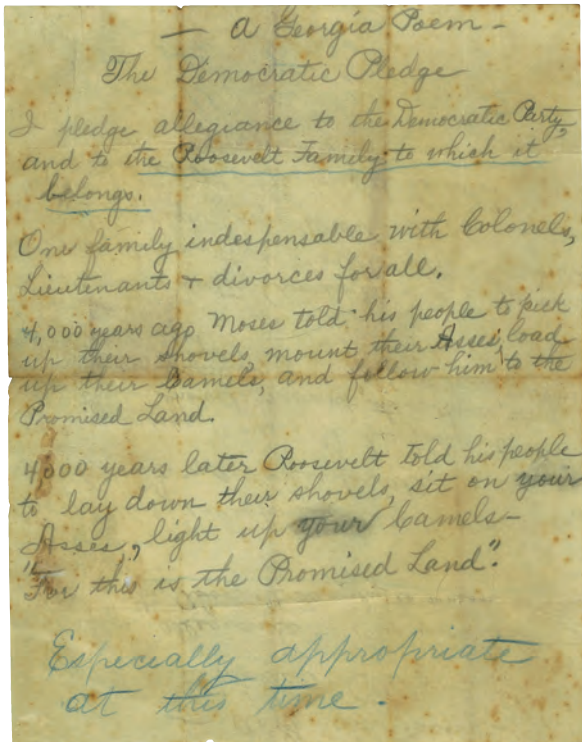 — A Georgia Poem —
The Democratic Pledge
I pledge allegiance to the Democratic Party,
and to the Roosevelt Family to which it
belongs.
One family indespensable with Colonels,
Lieutenants + divorces for all.
4,000 years ago Moses told his people to pick
up their shovels, mount their Asses, load
up their Camels, and follow him to the
Promised Land.
4,000 years later Roosevelt told his people
to lay down their shovels, sit on your
Asses, light up your Camels—
"For this is the Promised Land".
Especially appropriate
at this time.